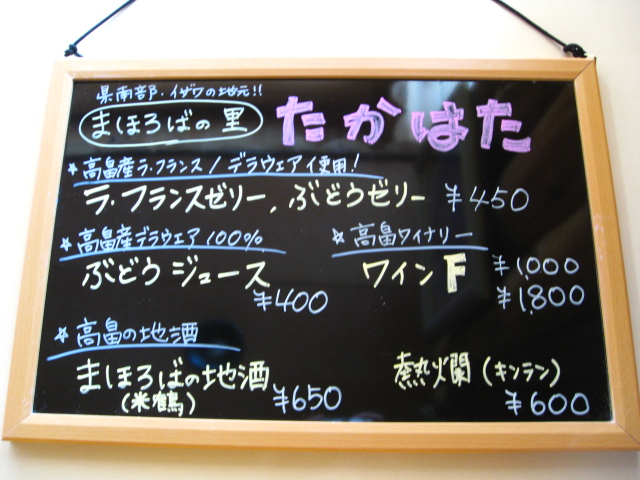 県南部・イザワの地元!!
まほろばの里 たかはた
★高畠産ラ・フランス/デラウェア使用!
ラ・フランスゼリー、ぶどうゼリー ¥450
★高畠産デラウェア100%
ぶどうジュース
¥400
★高畠ワイナリー
ワインF ¥1,000
¥1,800
★高畠の地酒
まほろばの地酒
(米鶴) ¥650
熱爛(キンラン)
¥600